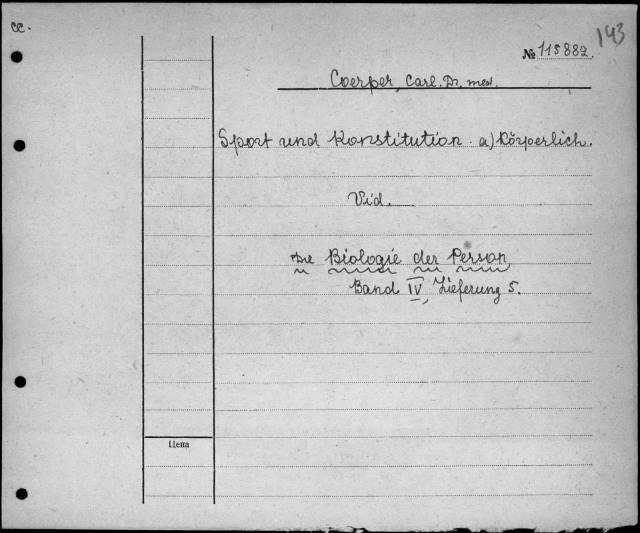 cc.
143
№ 115882.
Coerper, Carl. Dr. med.
Sport und Konstitution. a) Körperlich.
Vid.
Die Biologie der Person
Band IV, Lieferung 5.
Цена